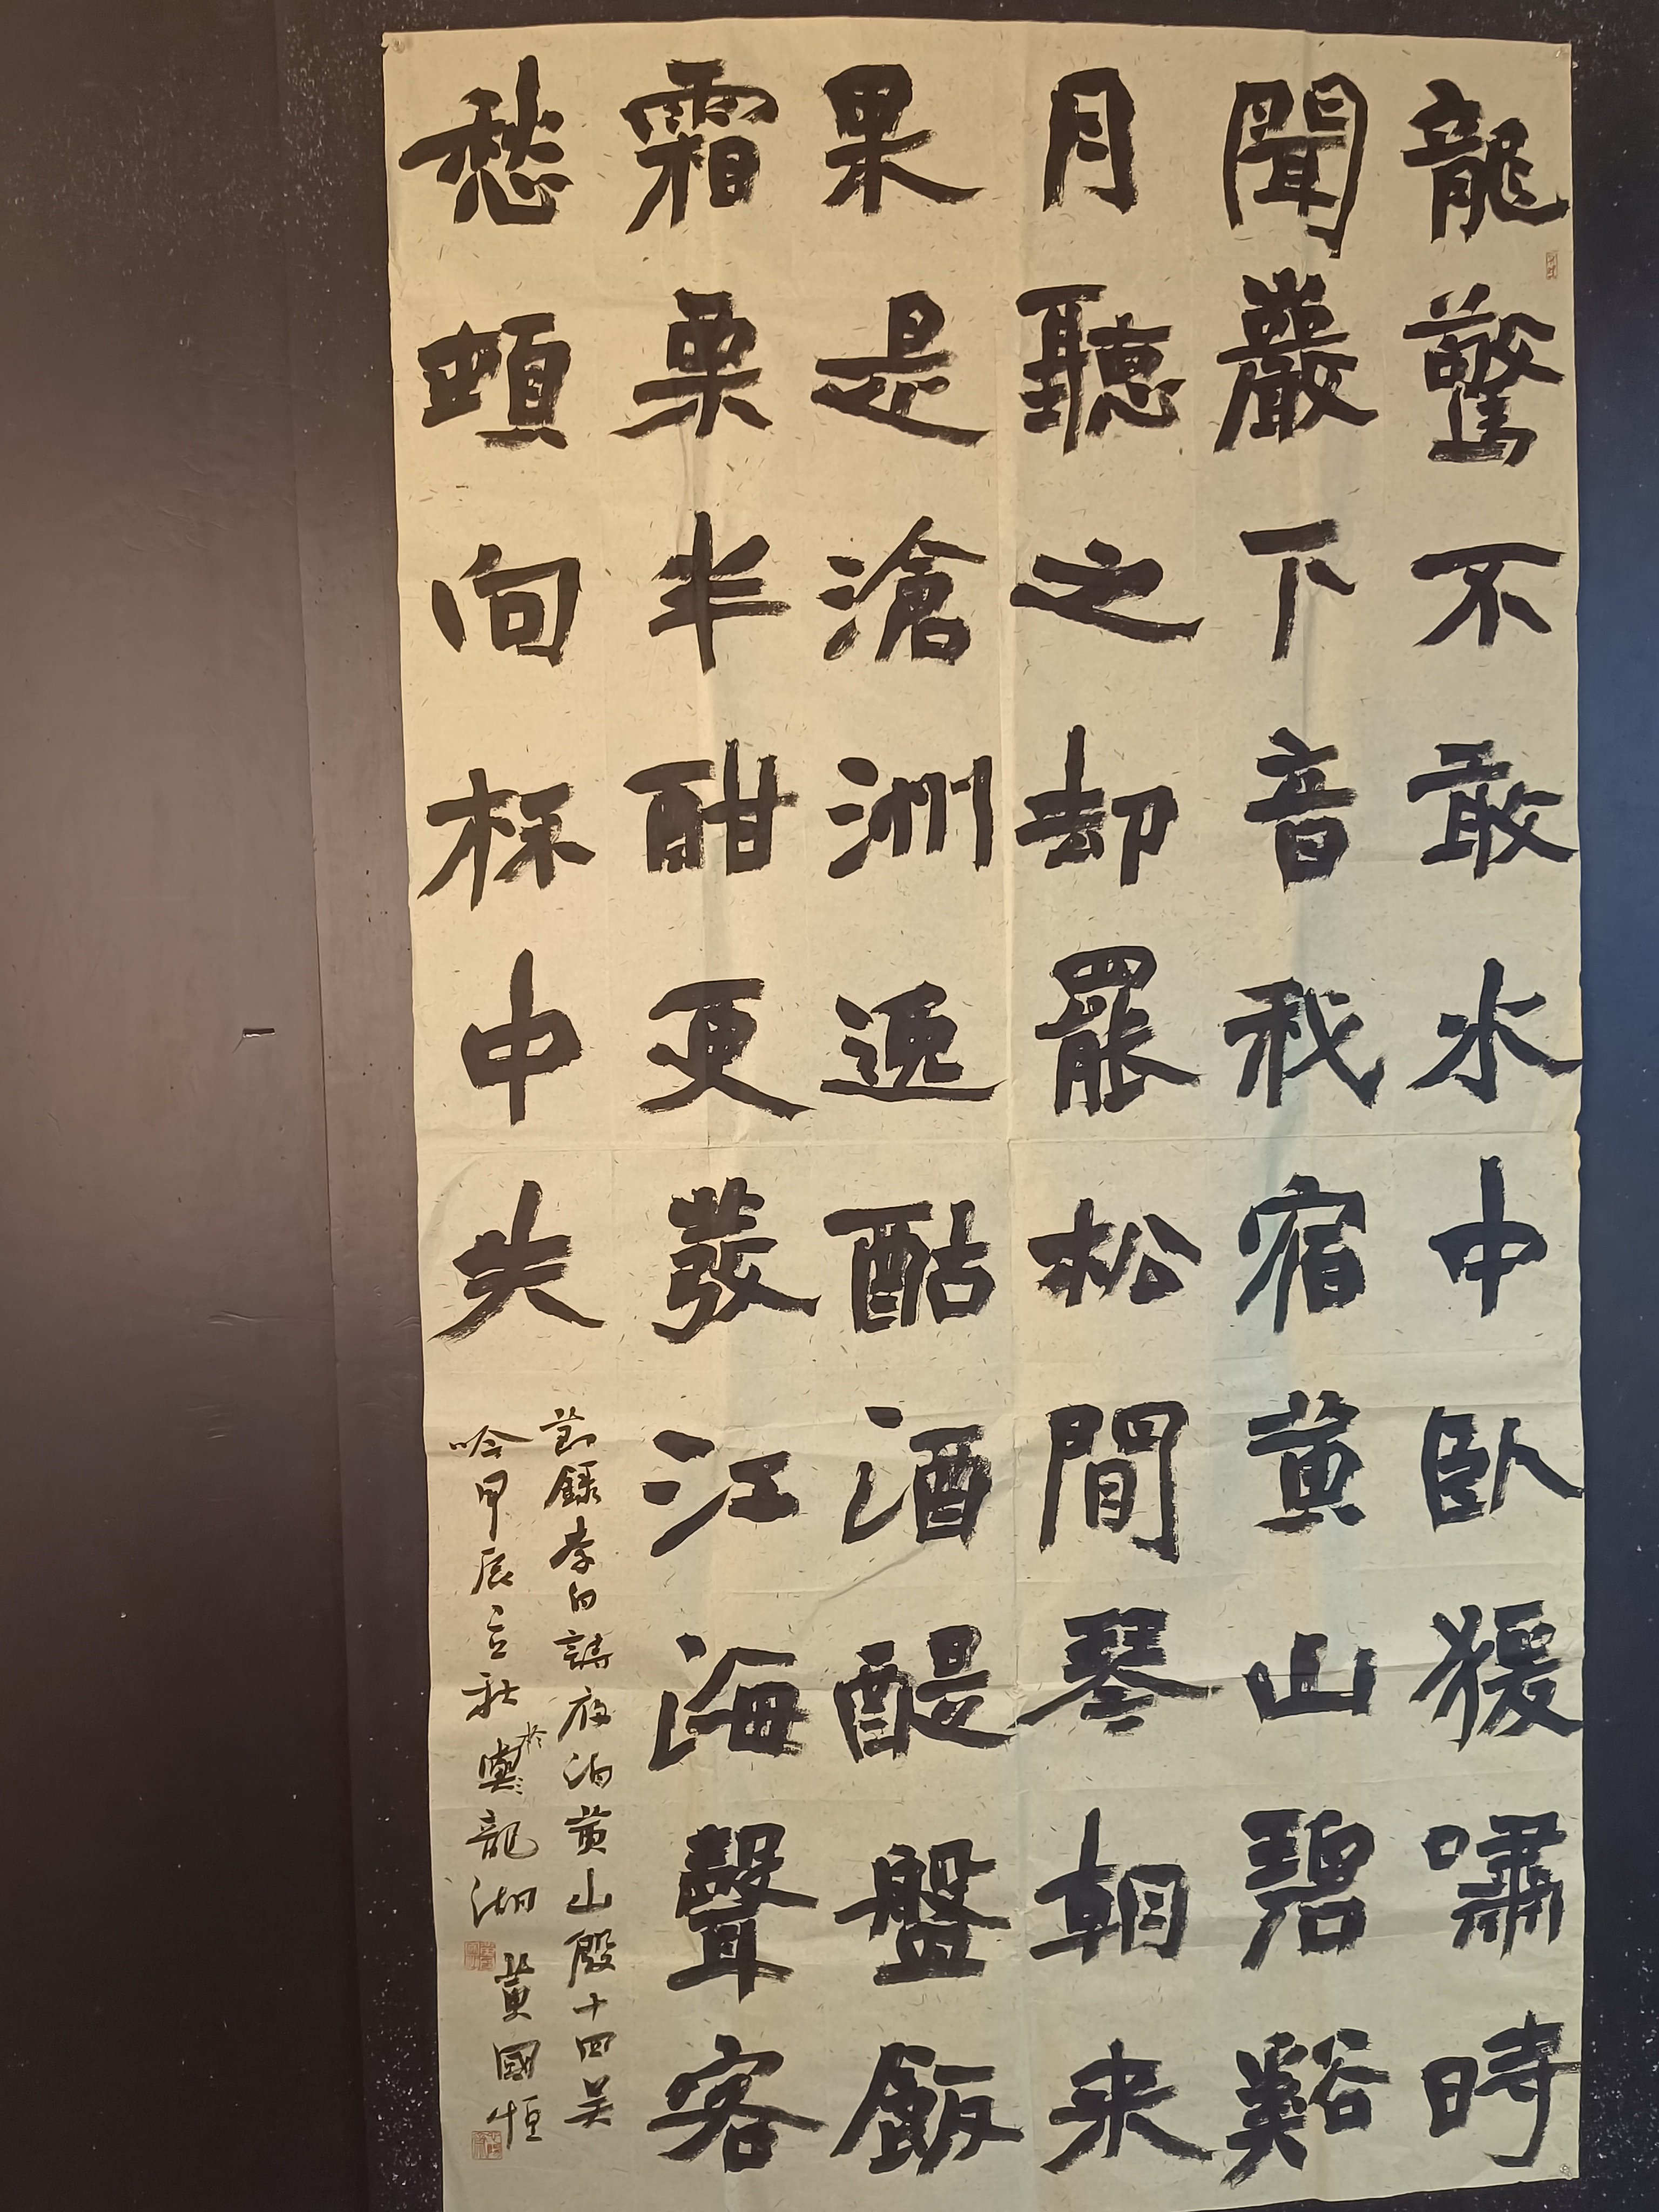 龍驚不敢水中臥猨嘯時
聞巖下音我宿黃山碧谿
月聽之却罷松間琴朝来
果是滄洲逸酤酒醍盤飯
霜栗半酣更發江海聲客
愁頓向杯中失
節錄李白詩夜泊黃山殷十四吳
吟甲辰立秋於龍湖
黃國恒